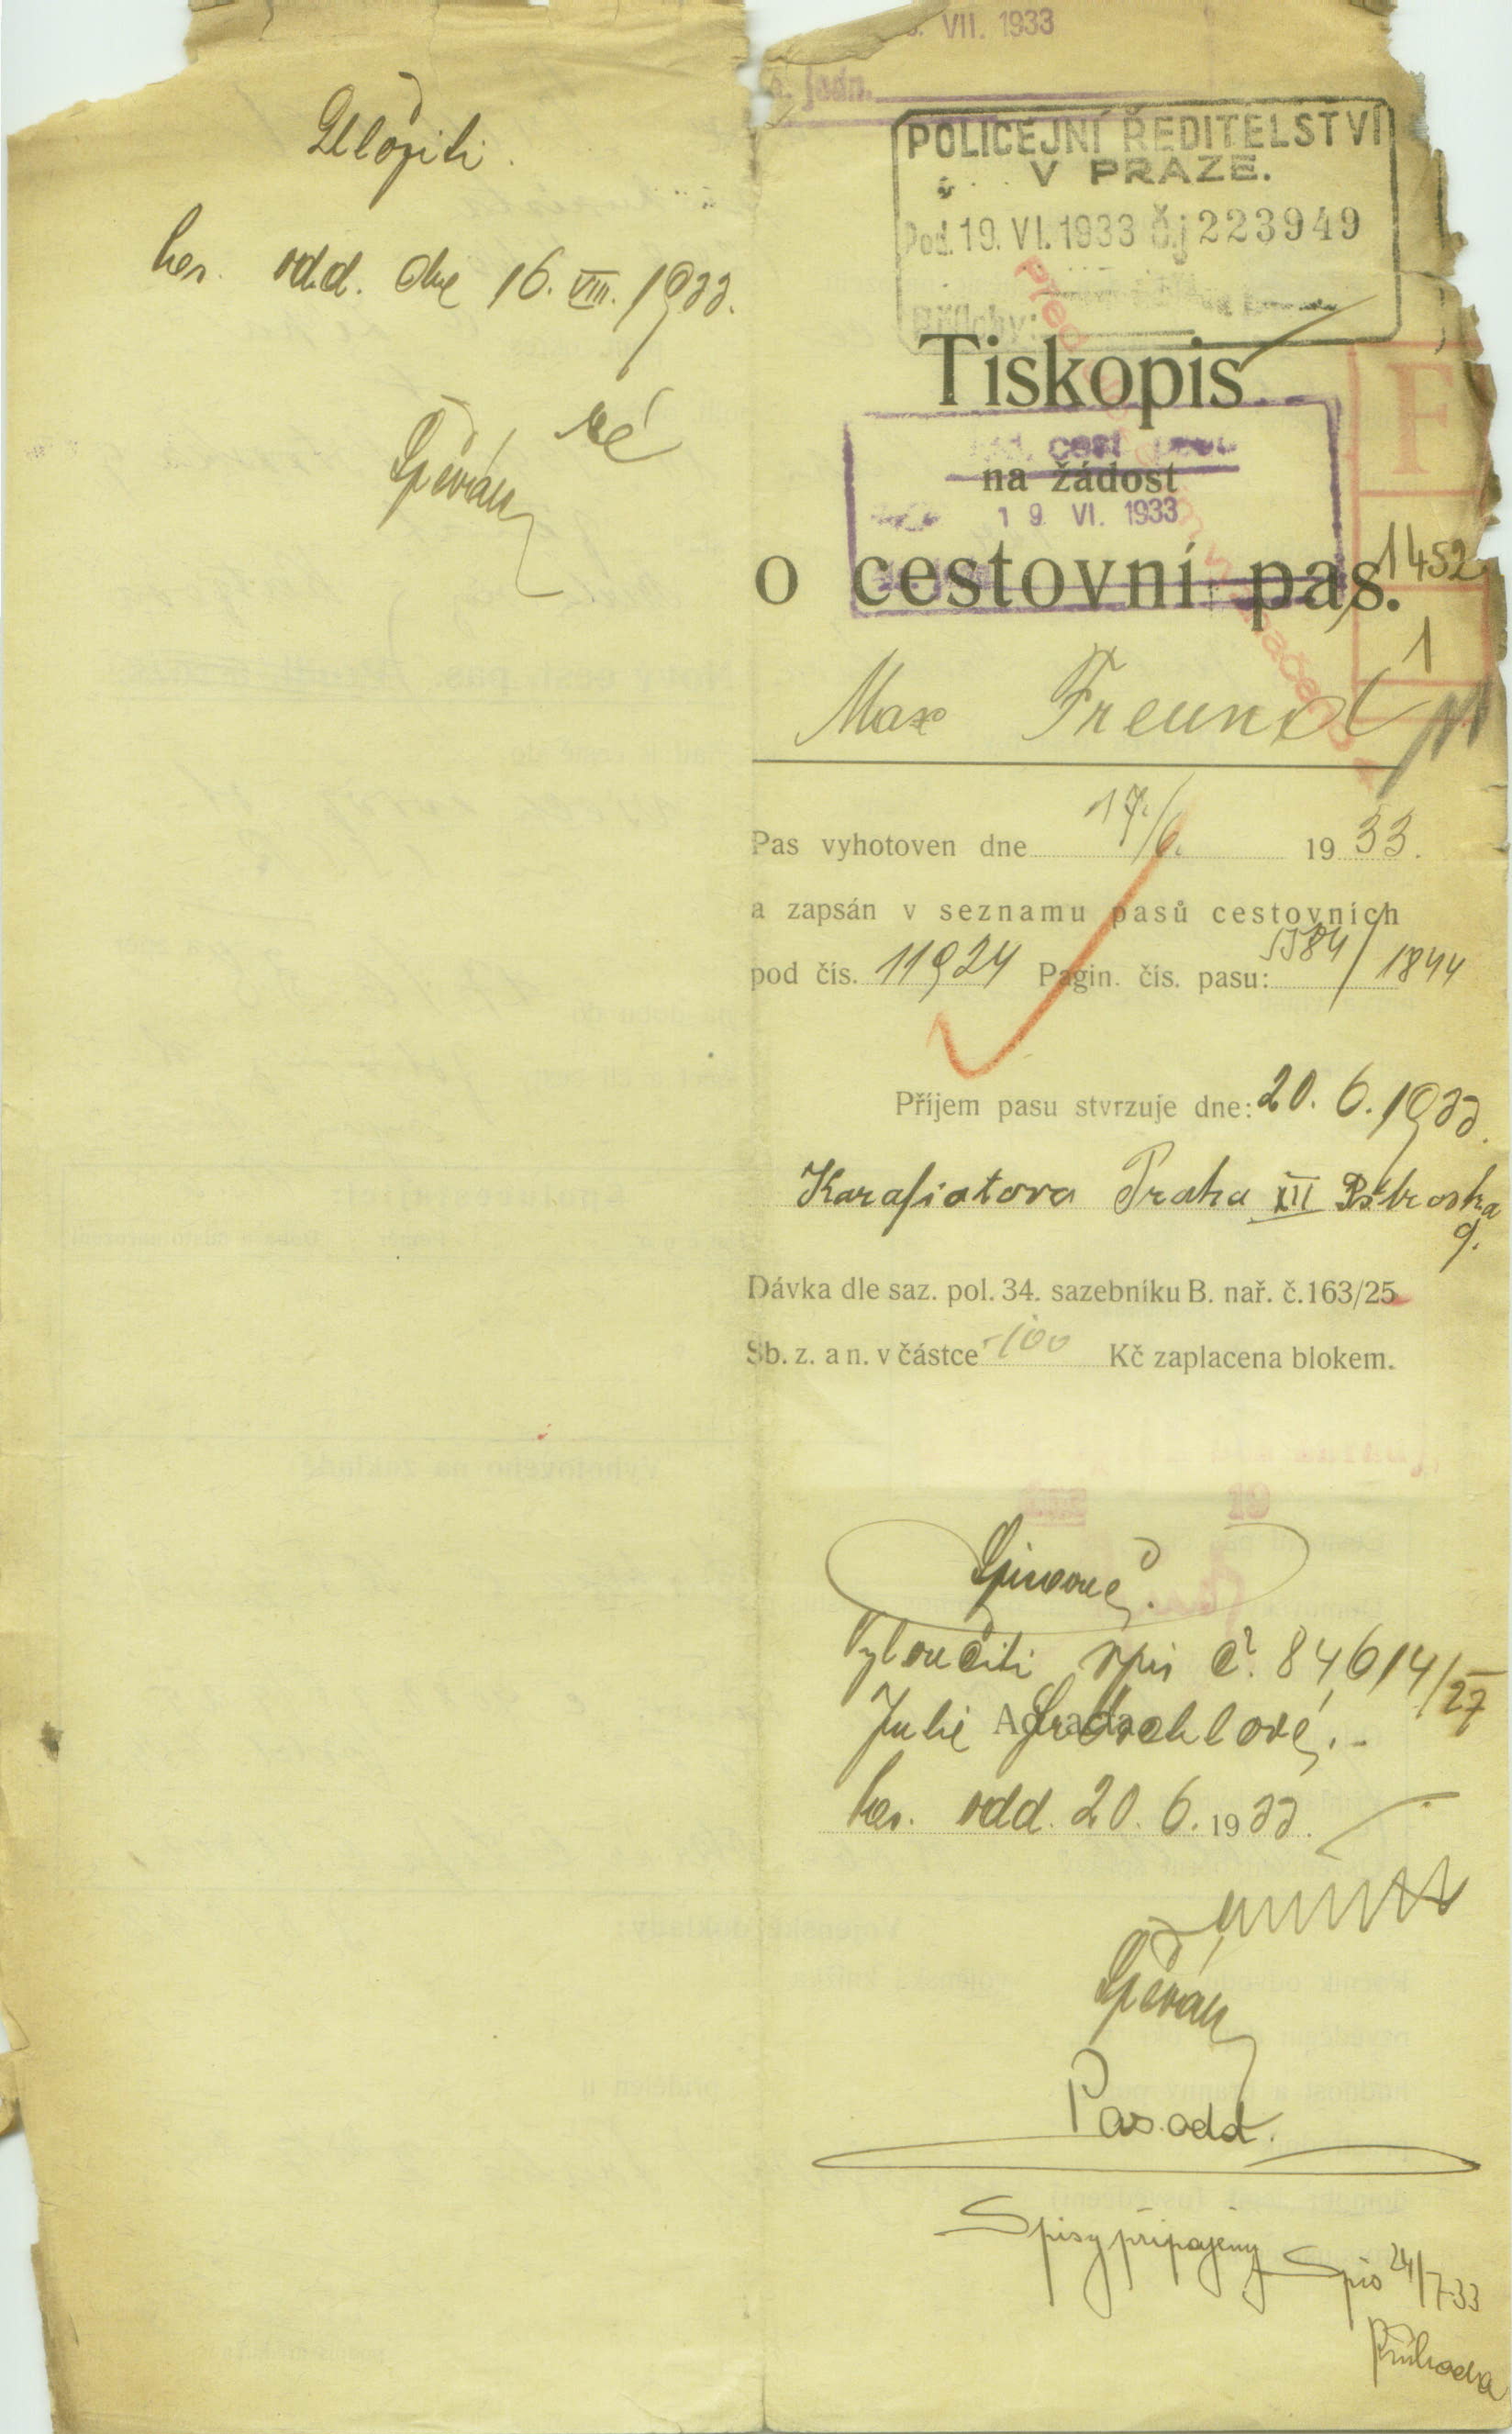 Uložiti.
odd. dne 16. VIII. 1933.
VII. 1933
jedn.
POLICEJNÍ ŘEDITELSTVÍ
V PRAZE.
Pod. 19. VI. 1933 č.j 223949
Přílohy:
Tiskopis
na žádost
19 VI. 1933
o cestovní pas.
F
1452
1
Max Freund
Pas vyhotoven dne 17./6. 1933.
a zapsán v seznamu pasů cestovních
pod čís. 11924 Pagin. čís. pasu: 5584/1844
Příjem pasu stvrzuje dne: 20. 6. 1933.
Karafiatova Praha XII
9.
Dávka dle saz. pol. 34. sazebníku B. nař. č. 163/25
Sb. z. a n. v částce -100 Kč zaplacena blokem.
Spisovně.
Vyloučiti spis č. 84614/27
Julie
odd. 20. 6. 1933.
Pas. odd.
Spisy připojeny Spis 24/7-33
Průhoda